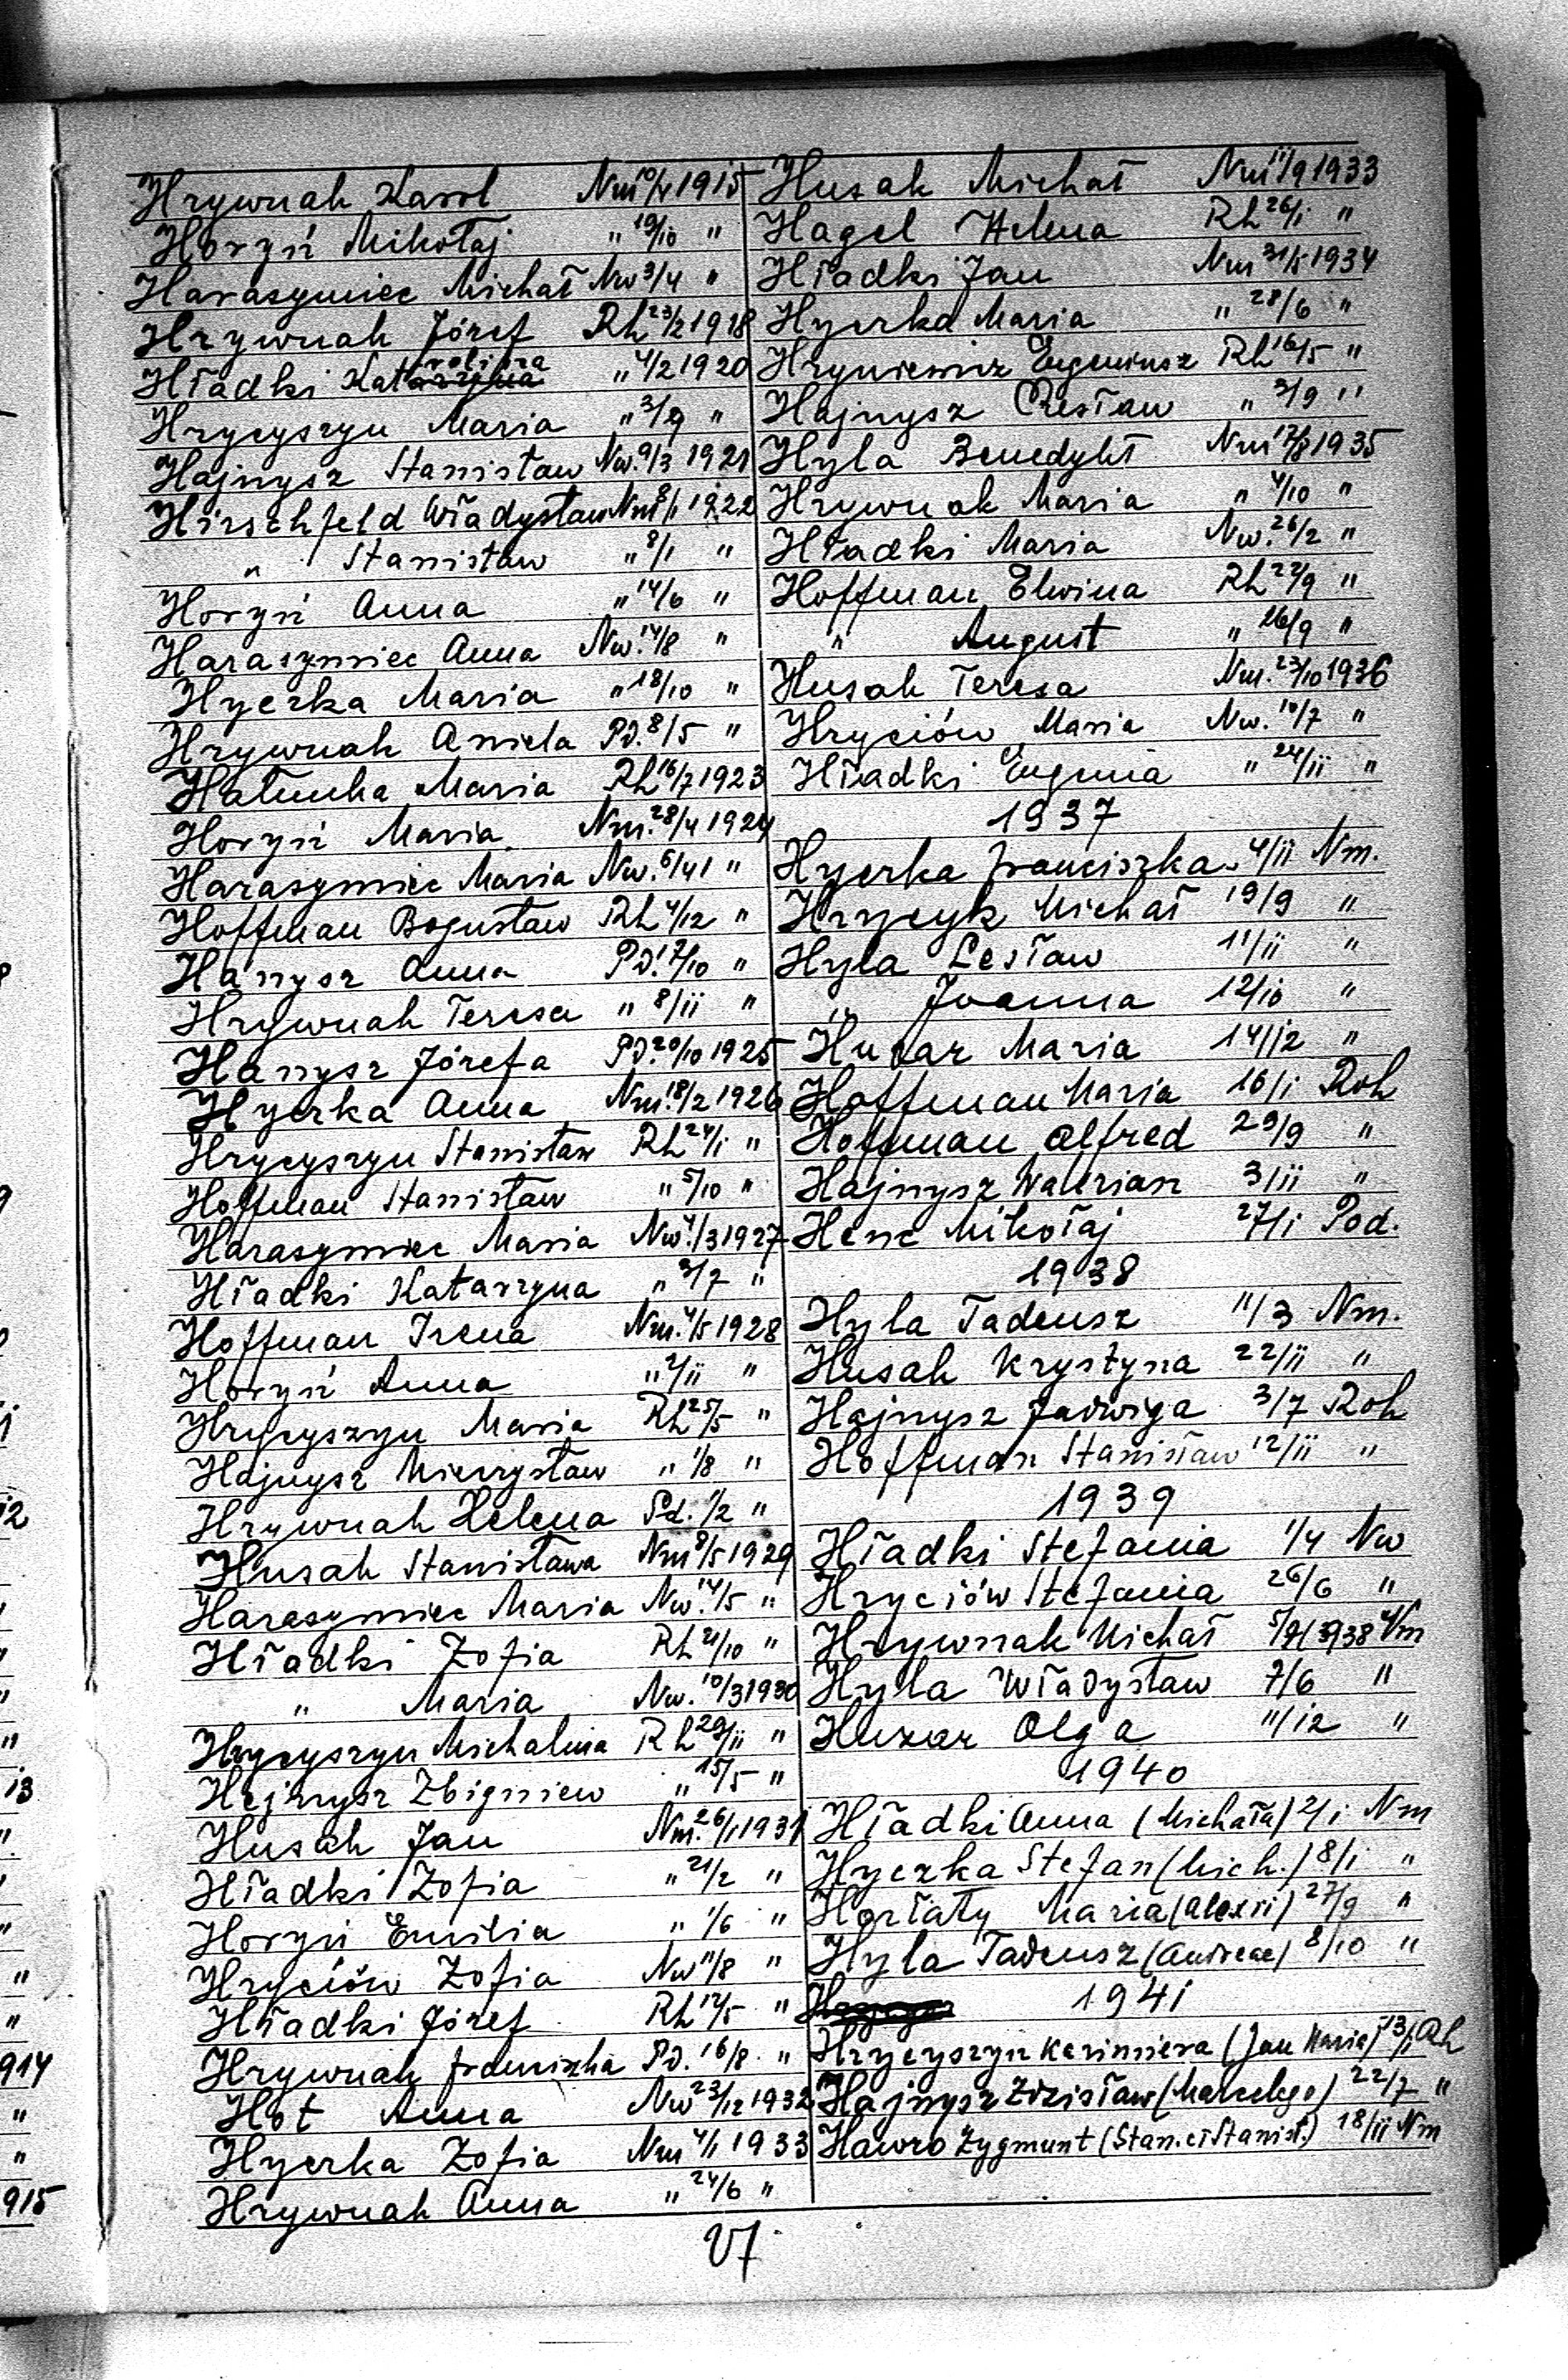 Hrywnak Karol Nm 10/4 1915
Horyń Mikołaj " 19/10 "
Harasymiec Michał Nw 3/4 "
Hrywnak Józef Rh 23/2 1918
Hładki Karolina " 4/2 1920
Hrycyszyn Maria " 3/9 "
Hajnysz Stanisław Nw. 9/3 1921
Hirschfeld Władysław Nm 8/1 1922
" Stanisław " 8/1 "
Horyń Anna " 14/6 "
Harasymiec Anna Nw. 14/8 "
Hycrka Maria " 18/10 "
Hrywnak Aniela Pd. 8/5 "
Maria Rh 16/7 1923
Horyń Maria Nm. 28/4 1924
Harasymiec Maria Nw. "
Hoffman Bogusław Rh 4/12 "
Hanysz Anna Pd. 17/10 "
Hrywnak Teresa " 8/11 "
Hanysz Józefa Pd. 20/10 1925
Hycrka Anna Nm. 18/2 1926
Hrycyszyn Stanisław Rh 24/1 "
Hoffman Stanisław " 5/10 "
Harasymiec Maria Nw. 4/3 1927
Hładki Katarzyna " 3/7 "
Hoffman Irena Nm. 4/5 1928
Horyń Anna " 2/11 "
Hrycyszyn Maria Rh 25/5 "
Hajnysz Mieczysław " 1/8 "
Hrywnak Helena Pd. 1/2 "
Husak Stanisława Nm 8/5 1929
Harasymiec Maria Nw. 14/5 "
Hładki Zofia Rh 21/10 "
" Maria Nw. 10/3 1930
Hrycyszyn Michalina Rh 29/11 "
Hajnysz Zbigniew " 15/5 "
Husak Jan Nm. 26/1 1931
Hładki Zofia " 21/2 "
Horyń Emilia " 1/6 "
Hryciów Zofia Nw 11/8 "
Hładki Józef Rh 12/5 "
Hrywnak Franciszka Pd. 16/8 "
Hot Anna Nw 23/12 1932
Hycrka Zofia Nm 4/1 1933
Hrywnak Anna " 24/6 "
Husak Michał Nm 11/9 1933
Hagel Helena Rh 26/1 "
Hładki Jan Nm 31/5 1934
Hycrka Maria " 28/6 "
Hryniewicz Eugeniusz Rh 16/5 "
Hajnysz Czesław " 3/9 "
Hyla Benedykt Nm 17/3 1935
Hrywnak Maria " 4/10 "
Hładki Maria Nw. 26/2 "
Hoffman Elwina Rh 22/9 "
" August " 26/9 "
Husak Teresa Nm. 23/10 1936
Hryciów Maria Nw. 10/7 "
Hładki Eugenia " 24/11 "
1937
Hycrka Franciszka 4/11 Nm.
Hrycyk Michał 19/9 "
Hyla Lesław 11/11 "
" Joanna 12/10 "
Huzar Maria 14/12 "
Hoffman Maria 16/1 Roh
Hoffman Alfred 29/9 "
Hajnysz Walerian 3/11 "
Henc Mikołaj 27/1 Pod.
1938
Hyla Tadeusz 11/3 Nm.
Husak Krystyna 22/11 "
Hajnysz Jadwiga 3/7 Roh
Hoffman Stanisław 12/11 "
1939
Hładki Stefania 1/4 Nw
Hryciów Stefania 26/6 "
Hrywnak Michał 1938 Nm
Hyla Władysław 7/6 "
Huzar Olga 11/12 "
1940
Hładki Anna (Michała) 2/1 Nm
Hyczka Stefan (Mich.) 8/1 "
Maria 27/9 "
Hyla Tadeusz (Andreae) 8/10 "
1941
Hrycyszyn Kazimiera (Jan Maria) 13/1 Rh
Hajnysz Zdzisław (Marcelego) 22/7 "
Hawro Zygmunt (Stan. ei Stanisł.) 18/11 Nm